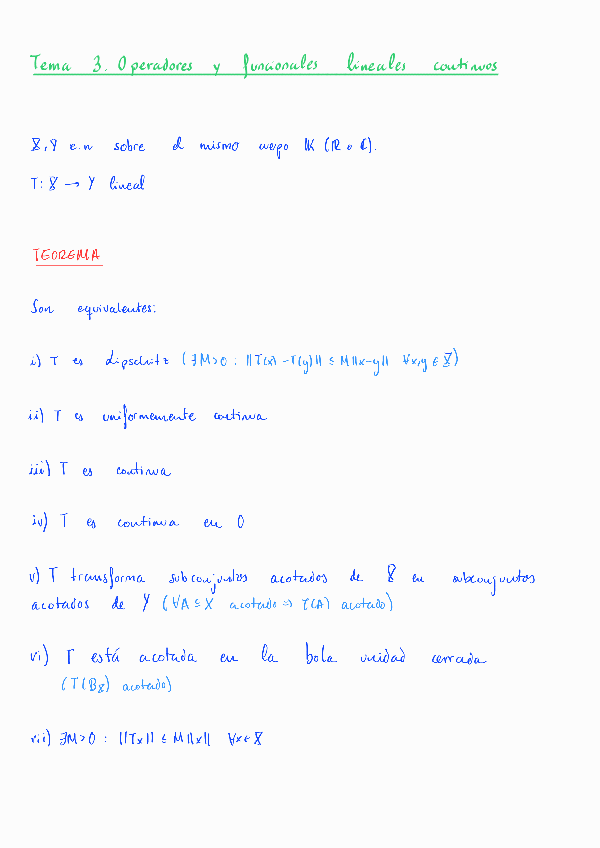 Tema 3. Operadores y funcionales lineales continuos
X, Y e.n sobre el mismo cuerpo 𝕂 (ℝ o ℂ).
T: X → Y lineal
TEOREMA
Son equivalentes:
i) T es Lipschitz (∃M>0 : ||T(x) - T(y)|| ≤ M||x-y|| ∀x,y ∈ X)
ii) T es uniformemente continua
iii) T es continua
iv) T es continua en 0
v) T transforma subconjuntos acotados de X en subconjuntos
acotados de Y (∀A ⊆ X acotado ⇒ T(A) acotado)
vi) T está acotada en la bola unidad cerrada
(T(B_X) acotado)
vii) ∃M>0 : ||Tx|| ≤ M||x|| ∀x ∈ X